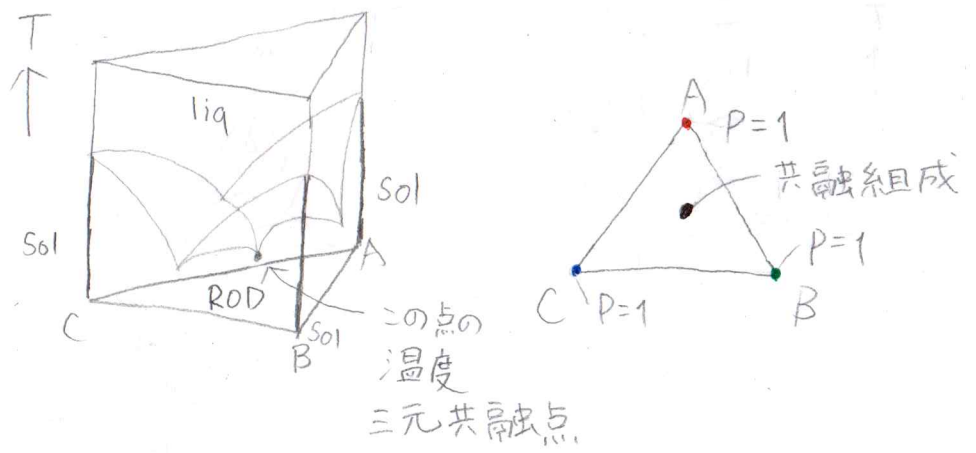 T
liq
Sol
Sol
A
ROD
C
Sol
B
この点の
温度
三元共融点
A
P=1
共融組成
P=1
C
P=1
B